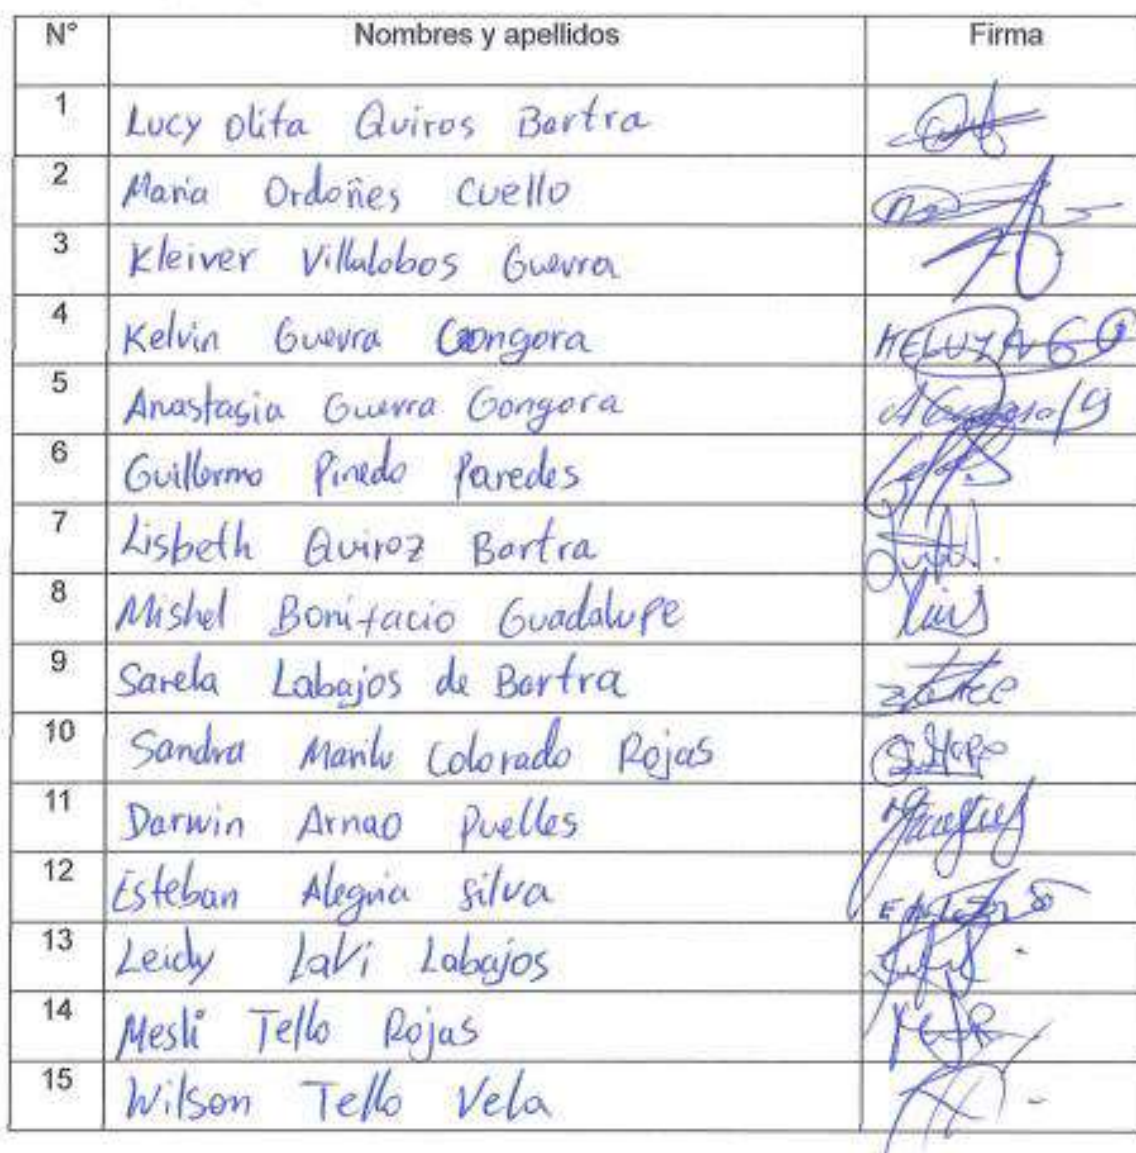 N° Nombres y apellidos Firma
1 Lucy Olita Quiros Bartra
2 Maria Ordoñes Cuello
3 Kleiver Villalobos Guevra
4 Kelvin Guevra Gongora
5 Anastasia Guerra Gongora
6 Guillermo Pinedo Paredes
7 Lisbeth Quiroz Bartra
8 Mishel Bonifacio Guadalupe
9 Sarela Labajos de Bartra
10 Sandra Marilu Colorado Rojas
11 Darwin Arnao Puelles
12 Esteban Alegria Silva
13 Leidy LaVi Labajos
14 Mesli Tello Rojas
15 Wilson Tello Vela